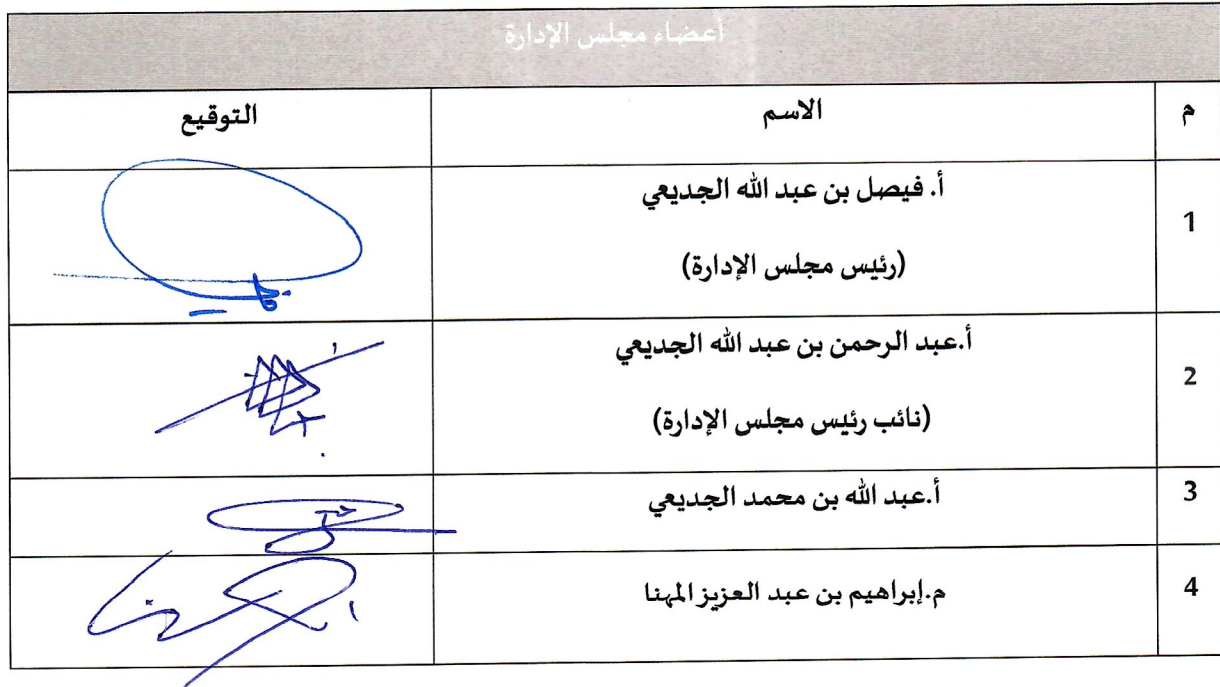 أعضاء مجلس الإدارة
م الاسم التوقيع
1 أ. فيصل بن عبد الله الجديعي
(رئيس مجلس الإدارة)
2 أ.عبد الرحمن بن عبد الله الجديعي
(نائب رئيس مجلس الإدارة)
3 أ.عبد الله بن محمد الجديعي
4 م.إبراهيم بن عبد العزيز المهنا